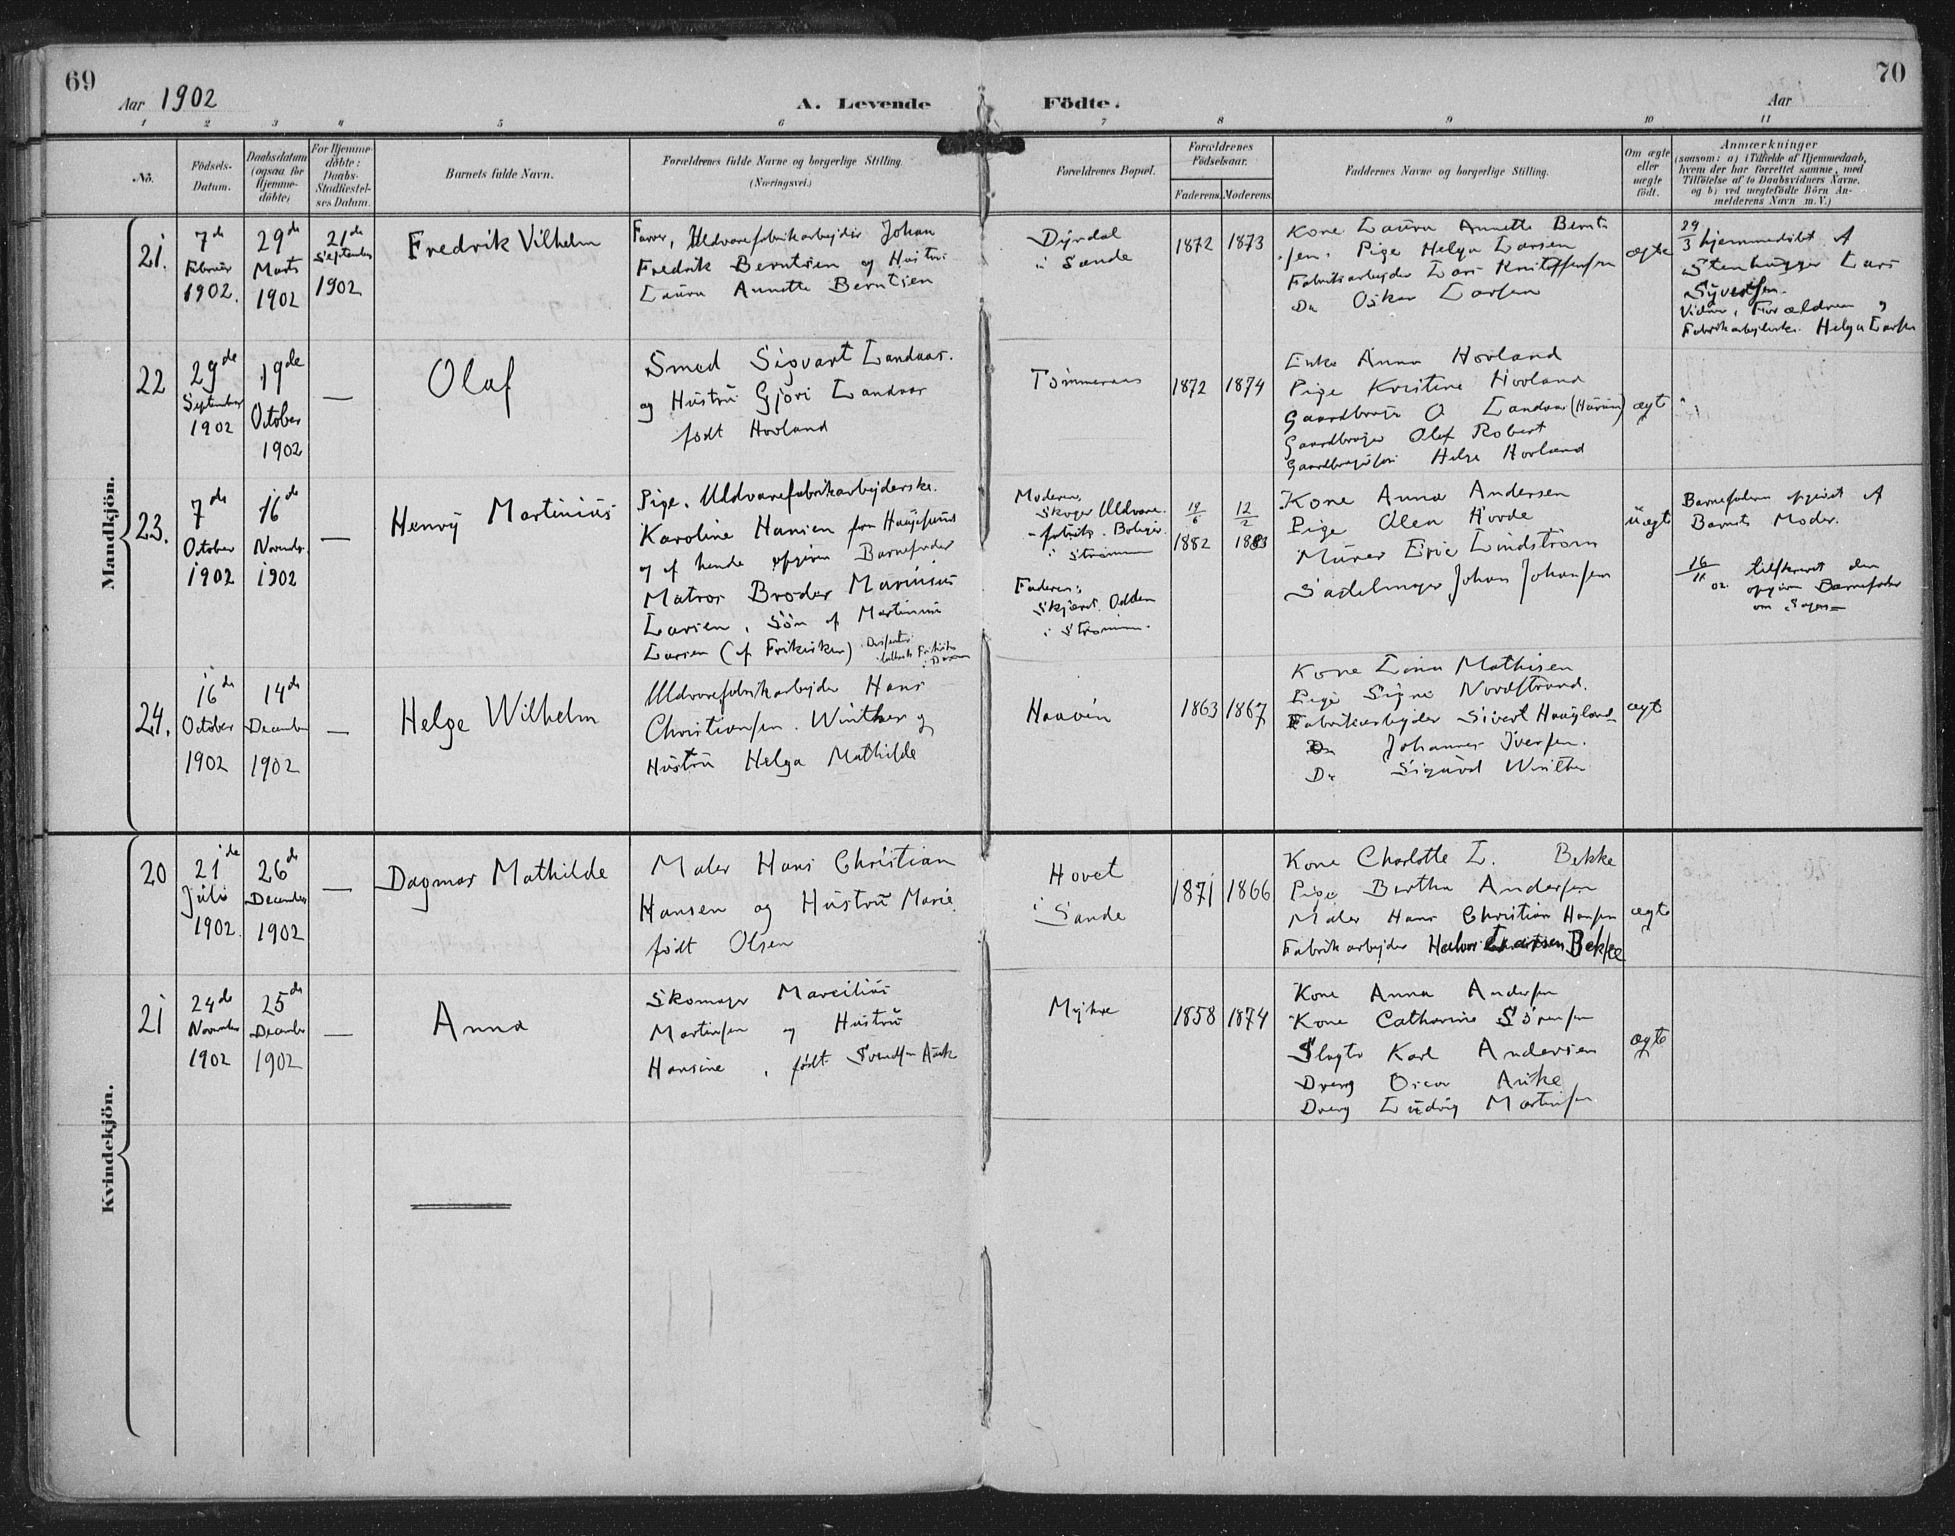 69
Aar 1902
A. Levende
Födte.
Aar
70
1 2 3 4 5 6 7 8 9 10 11
No.
Födsels-
Datum.
Daabsdatum
(ogsaa for
Hjemme-
döbte)
For Hjemme-
döbte:
Daabs-
Stadfæstel-
ses Datum.
Barnets fulde Navn.
Forældrenes fulde Navne og borgerlige Stilling.
(Næringsvei.)
Forældrenes Bopæl.
Forældrenes
Födselsaar.
Faderens.
Moderens.
Faddernes Navne og borgerlige Stilling.
Om ægte
eller
uægte
födt.
Anmærkninger
(saasom: a) i Tilfælde af Hjemmedaab,
hvem der har forrettet samme, med
Tilföielse af to Daabsvidners Navne,
og b) ved uægtefödte Börn An-
melderens Navn m. V.)
Mandkjön.
21.
7de
Februar
1902.
29de
Marts
1902
21de
September
1902
Fredrik Vilhelm
Farver, Uldvarefabrikarbejder Johan
Fredrik Berntsen og Hustru
Laura Annette Berntsen
Dyrdal
i Sande
1872
1873
Kone Laura Annette Bernt-
sen. Pige Helga Larsen
Fabrikarbejder Lars Kristoffersen
Do Oskar Larsen
ægte
29/3 hjemmedöbt af
Stenhugger Lars
Syvertsen.
Vidner, Forældrene,
Fabrikarbejderske Helga Larsen
22
29de
September
1902
19de
October
1902
—
Olaf
Smed Sigvart Landaas.
og Hustru Gjøri Landaas
født Hovland
Tømmeraas
1872
1874
Enke Anna Hovland
Pige Kristine Hovland
Gaardbruger O Landaas
Gaardbruger Olaf Robert
Helge Hovland
ægte
23.
7de
October
1902
16de
November
1902
—
Henry Martinius
Pige, Uldvarefabrikarbejderske.
Karoline Hansen fra
og af hende opgiven Barnefader
Matros Broder Marinius
Larsen, Søn af Martinius
Larsen (af Frikirken)
Moderen,
Skoger Uldvare-
fabriks Bolig
i Strømmen
Faderen:
Odden
i Strømmen.
19/6
1882
12/2
1883
Kone Anna Andersen
Pige Olea Hovde
Murer Eric Lindstrøm
Sadelmager Johan Johansen
uægte
Barnefaderen opgivet af
Barnets Moder.
16/11 02. tilskrevet den
opgivne Barnefader
om Sagen
24.
16de
October
1902
14de
December
1902
—
Helge Wilhelm
Uldvarefabrikarbejder Hans
Christiansen Winther og
Hustru Helga Mathilde
Haaven
1863
1867
Kone Lina Mathisen
Pige Signe Nordstrand.
Fabrikarbejder Sivert Haugland
Do Johannes Iversen.
Do Sigurd Winther
ægte
Kvindekjön.
20
21de
Juli
1902.
26de
December
1902
—
Dagmar Mathilde
Maler Hans Christian
Hansen og Hustru Marie
født Olsen
Hovet
i Sande
1871
1866
Kone Charlotte L. Bekke
Pige Bertha Andersen
Maler Hans Christian Hansen
Fabrikarbejder Halvor Bekke
ægte
21
24de
November
1902
25de
December
1902
—
Anna
Skomager Marcilius
Martinsen og Hustru
Hansine, født Svendsen
Myhre
1858
1874
Kone Anna Andersen
Kone Catharine Sörensen
Slagter Karl Andersen
Dreng Oscar
Dreng Ludvig Martinsen
ægte